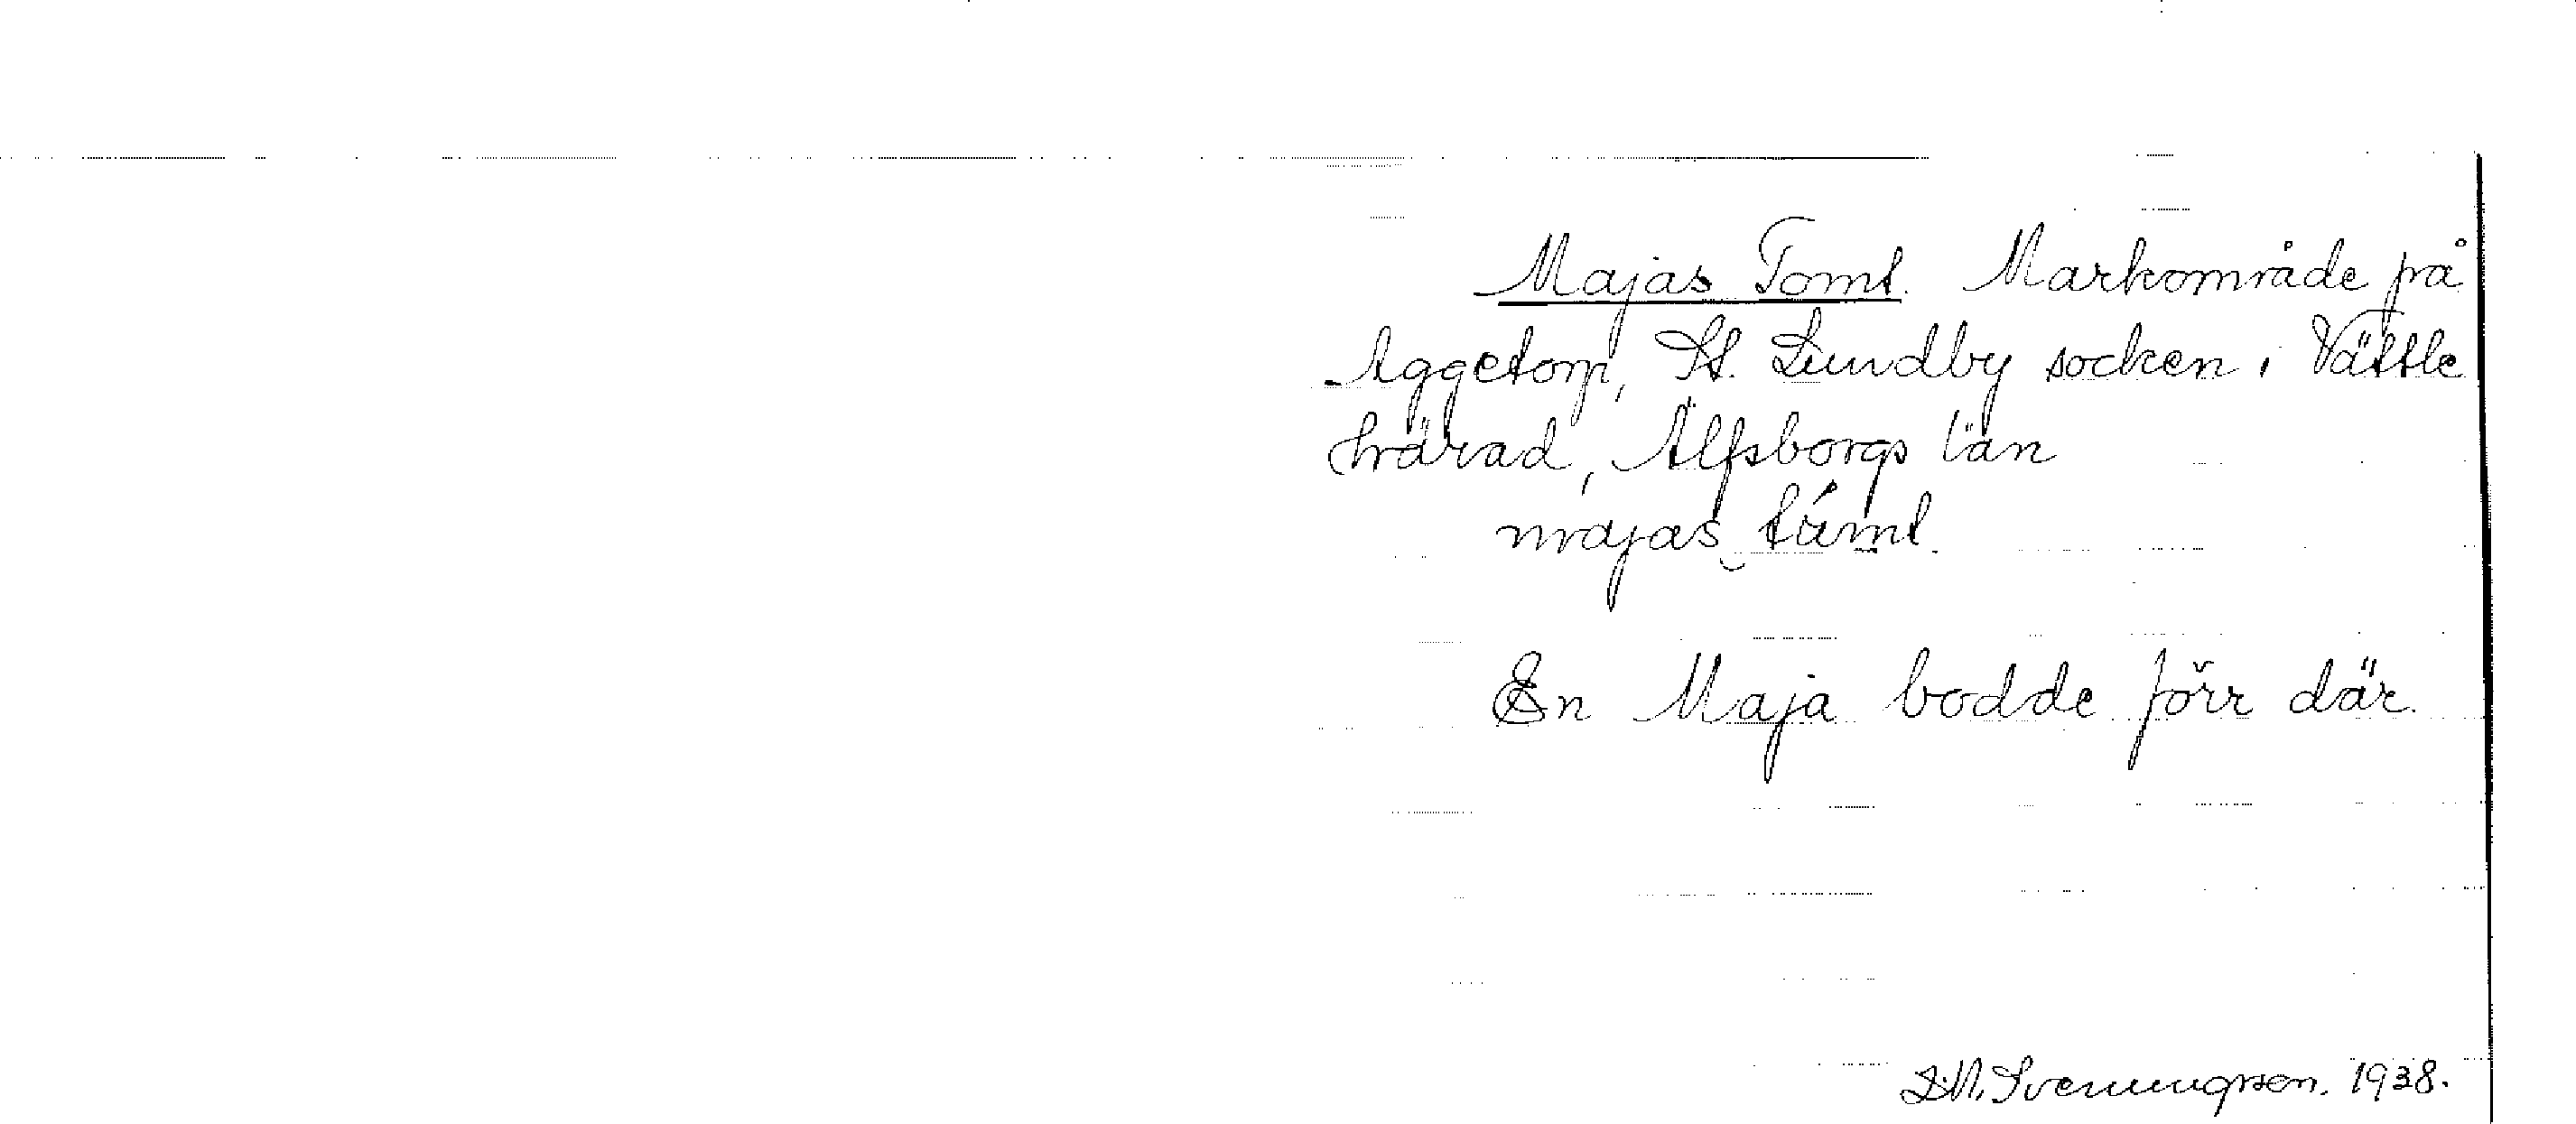 Majas Tomt. Markområde på
Aggetorp, St. Lundby socken i Vättle
härad, Älfsborgs län
majas támt.
En Maja bodde förr där.
D.N. Svenungsson. 1938.